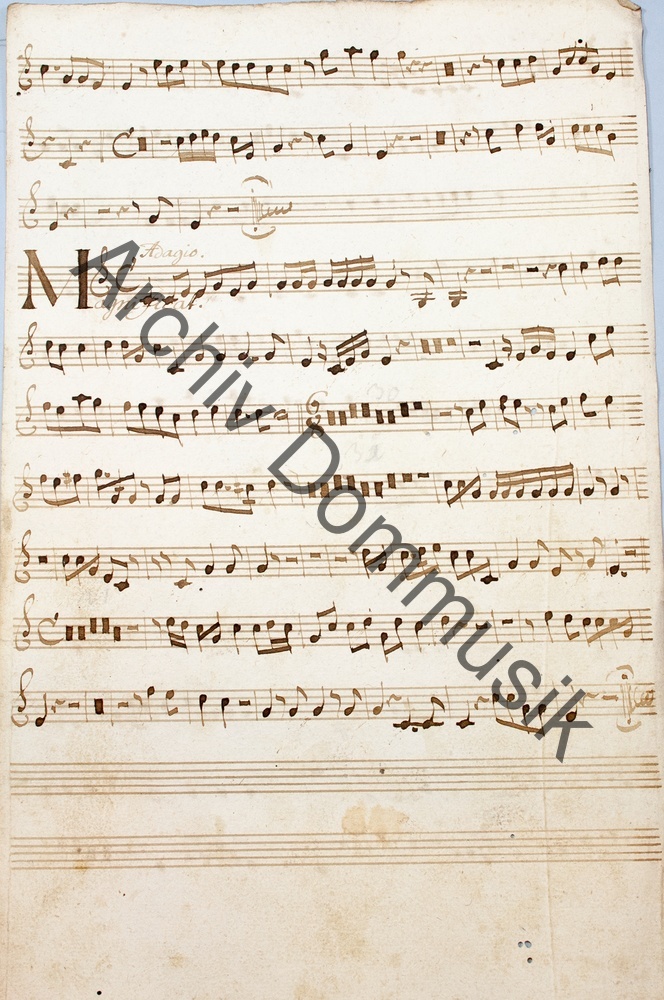 Adagio.
Magnificat.
Archiv Dommusik